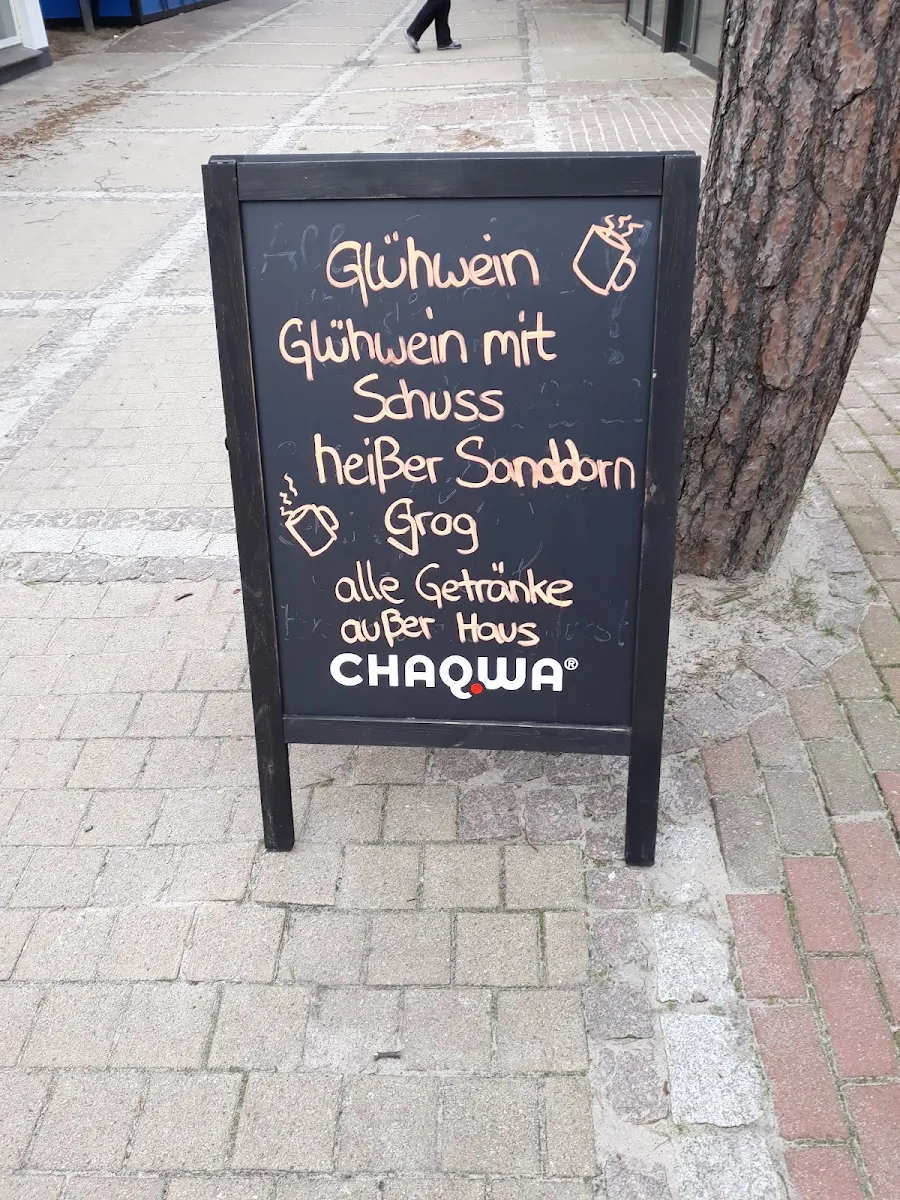 Glühwein
Glühwein mit
Schuss
heißer Sanddorn
Grog
alle Getränke
außer Haus
CHAQWA®